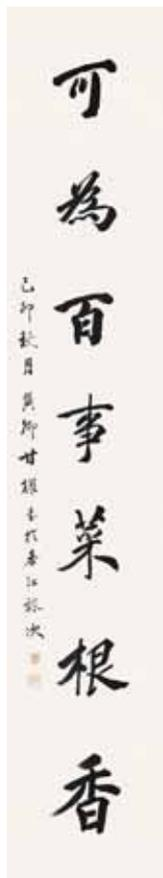 可為百事菜根香
己卯秋月 冀卿甘耀 書於香江旅次